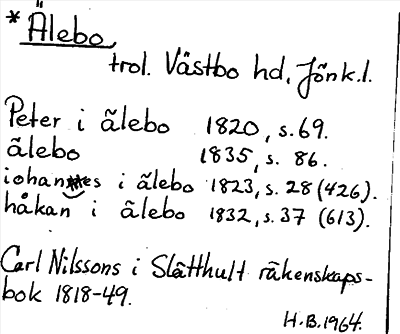 *Älebo,
trol. Västbo hd, Jönk.l.
Peter i älebo 1820, s.69.
älebo 1835, s. 86.
iohannes i älebo 1823, s. 28 (426).
håkan i älebo 1832, s. 37 (613).
Carl Nilssons i Slätthult räkenskaps-
bok 1818-49.
H.B.1964.